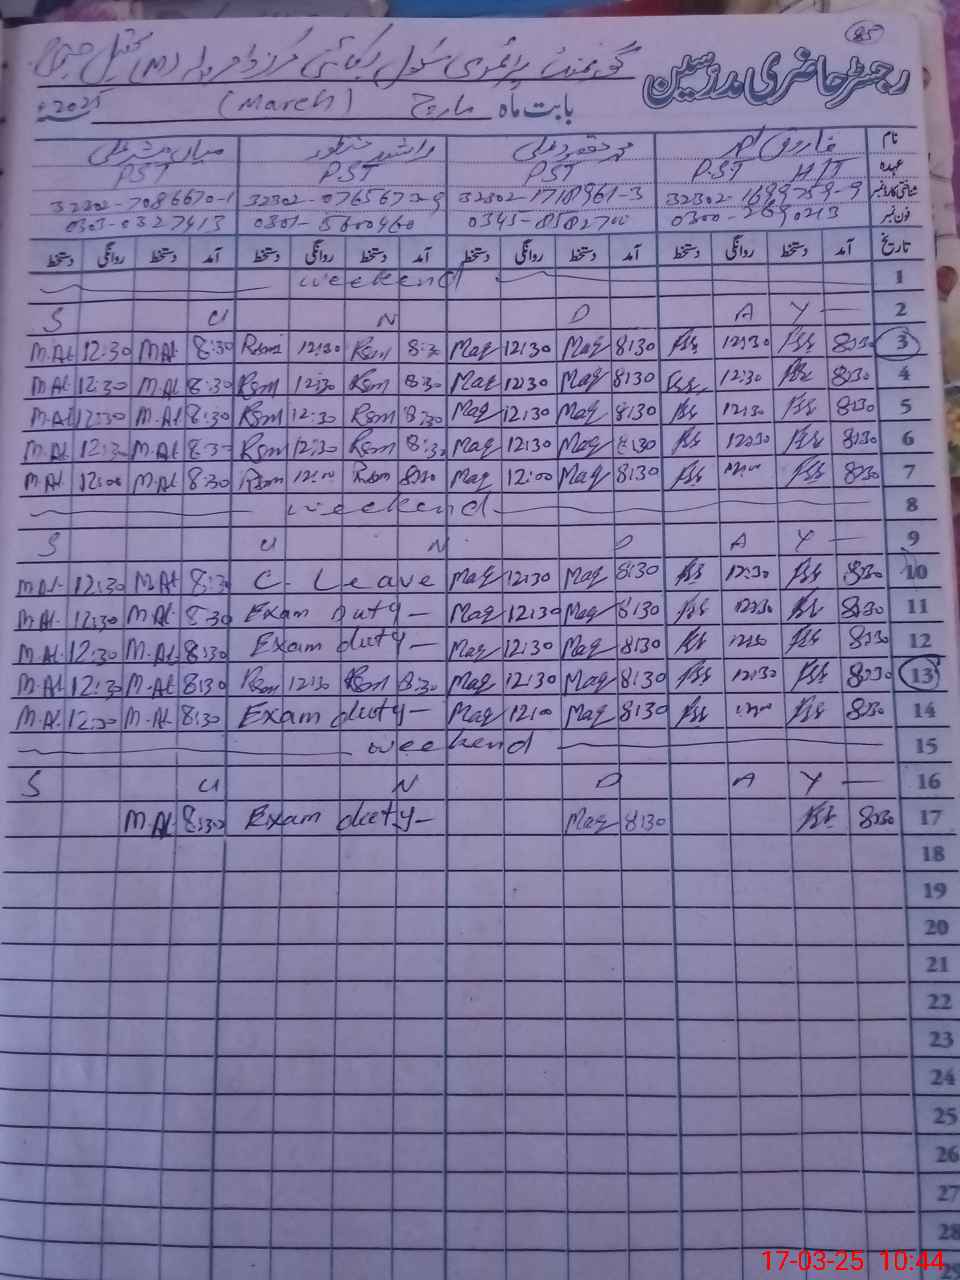 85
رجسٹر حاضری مدرسین
گورنمنٹ پرائمری سکول
بابت ماہ مارچ (March) 2025ء
نام فاروق احمد محمد مقصود علی راشد منظور میاں مبشر علی
عہدہ PST HIT PST PST PST
شناختی کارڈ نمبر 32302-1699759-9 32302-1718961-3 32302-0765673-9 32302-7086670-1
فون نمبر 0300-2690213 0345-8582700 0301-5600460 0303-0327413
تاریخ آمد دستخط روانگی دستخط آمد دستخط روانگی دستخط آمد دستخط روانگی دستخط آمد دستخط روانگی دستخط
weekend 1
S U N D A Y 2
M.At 12:30 M.At 8:30 Rsm 12:30 Rsm 8:30 Maq 12:30 Maq 8:30 12:30 8:30 3
M.At 12:30 M.At 8:30 Rsm 12:30 Rsm 8:30 Maq 12:30 Maq 8:30 12:30 8:30 4
M.At 12:30 M.At 8:30 Rsm 12:30 Rsm 8:30 Maq 12:30 Maq 8:30 12:30 8:30 5
M.At 12:30 M.At 8:30 Rsm 12:30 Rsm 8:30 Maq 12:30 Maq 8:30 12:30 8:30 6
M.At 12:00 M.At 8:30 Rsm 12:00 Rsm 8:30 Maq 12:00 Maq 8:30 12:00 8:30 7
weekend 8
S U N D A Y 9
M.At 12:30 M.At 8:30 C. Leave Maq 12:30 Maq 8:30 12:30 8:30 10
M.At 12:30 M.At 8:30 Exam Duty Maq 12:30 Maq 8:30 12:30 8:30 11
M.At 12:30 M.At 8:30 Exam duty Maq 12:30 Maq 8:30 12:30 8:30 12
M.At 12:30 M.At 8:30 Rsm 12:30 Rsm 8:30 Maq 12:30 Maq 8:30 12:30 8:30 13
M.At 12:00 M.At 8:30 Exam duty Maq 12:00 Maq 8:30 12:00 8:30 14
weekend 15
S U N D A Y 16
M.At 8:30 Exam duty Maq 8:30 8:30 17
18
19
20
21
22
23
24
25
26
27
28
29
17-03-25 10:44